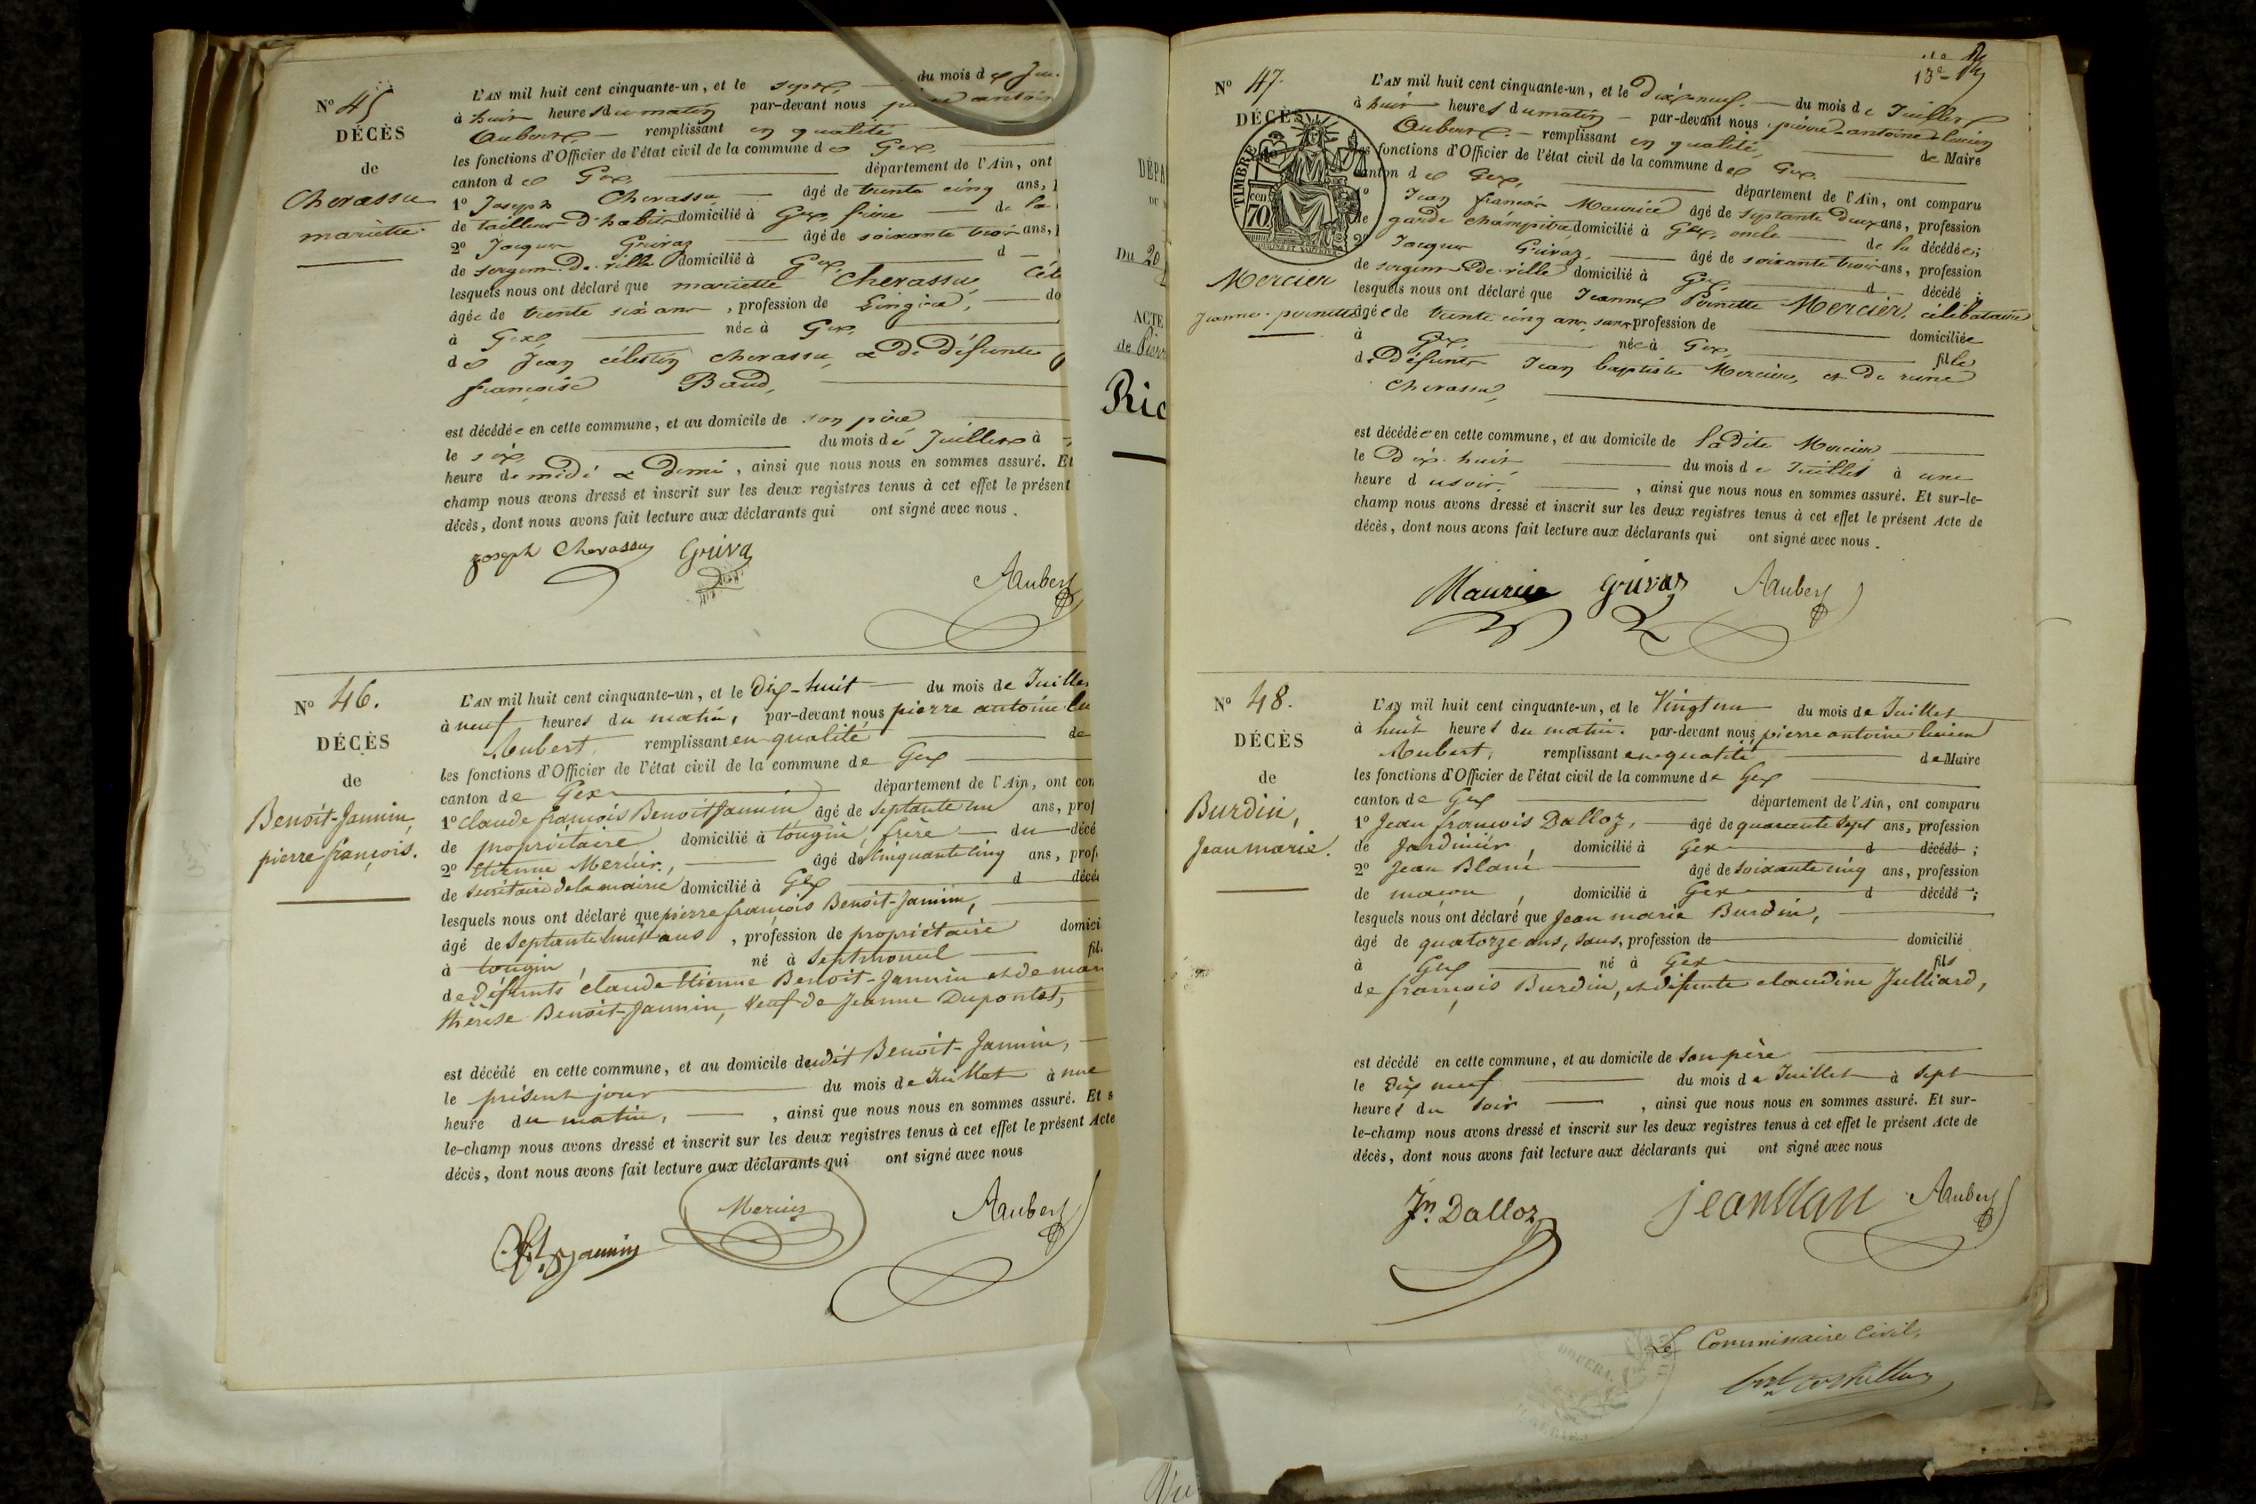 Nº 45
DÉCÈS
de
Chevassu
mariette.
L'AN mil huit cent cinquante-un, et le sept, du mois de
à huit heures du matin par-devant nous pierre antoin
Aubert remplissant en qualité
les fonctions d'Officier de l'état civil de la commune de Gex,
canton de Gex, département de l'Ain, ont
1º Joseph Chevassu âgé de trente cinq ans,
de tailleur d'habits domicilié à Gex, frère de la
2º Jacques Grivaz âgé de soixante trois ans,
de sergent de ville domicilié à Gex, d
lesquels nous ont déclaré que mariette Chevassu, Céli
âgée de trente six ans, profession de Lingère, do
à Gex, née à Gex,
de Jean célestin chevassu, & De défunte
françoise Baud,
est décédée en cette commune, et au domicile de son père
le six, du mois de Juillet à
heure de midi & Demi, ainsi que nous nous en sommes assuré. Et
champ nous avons dressé et inscrit sur les deux registres tenus à cet effet le présent
décès, dont nous avons fait lecture aux déclarants qui ont signé avec nous.
joseph Chevassu Griva Aubert
Nº 46.
DÉCÈS
de
Benoît-Jannin,
pierre françois.
L'AN mil huit cent cinquante-un, et le Dix-huit du mois de Juillet
à neuf heures du matin, par-devant nous pierre antoine lu
Aubert, remplissant en qualité de
les fonctions d'Officier de l'état civil de la commune de Gex
canton de Gex département de l'Ain, ont com
1º Claude françois Benoit Jannin âgé de septante un ans, prof
de propriétaire domicilié à tougin, frère du décé
2º Etienne Mercier, âgé de Cinquante cinq ans, prof
de secrétaire de la mairie domicilié à Gex d décéd
lesquels nous ont déclaré que pierre françois Benoît-Jannin,
âgé de septante huit ans, profession de propriétaire domici
à tougin, né à Septmoncel fil
de défunts claude Etienne Benoit-Jannin et de mar
thérèse Benoît-Jannin, Veuf de Jeanne Dupontet,
est décédé en cette commune, et au domicile dudit Benoît-Jannin,
le présent jour du mois de Juillet à une
heure du matin, ainsi que nous nous en sommes assuré. Et s
le-champ nous avons dressé et inscrit sur les deux registres tenus à cet effet le présent Acte
décès, dont nous avons fait lecture aux déclarants qui ont signé avec nous
Jannin Mercier Aubert
DÉPA
Du 20
ACTE
de
Ric
13e
Nº 47.
DÉCÈS
TIMBRE
70
Mercier
Jeanne pernette
L'AN mil huit cent cinquante-un, et le Dix-neuf. du mois de Juillet
à huit heures du matin par-devant nous pierre-antoine-lucien
Aubert. remplissant en qualité, de Maire
es fonctions d'Officier de l'état civil de la commune de Gex
canton de Gex, département de l'Ain, ont comparu
1º Jean françois Maurice âgé de septante Deux ans, profession
de garde champêtre domicilié à Gex, oncle de la décédée;
2º Jacques Grivaz, âgé de soixante trois ans, profession
de sergent de ville domicilié à Gex, d décédé;
lesquels nous ont déclaré que Jeanne Pernette Mercier, célibataire
âgée de trente cinq ans, sans profession de
à Gex, née à Gex, domiciliée
de Défunts Jean baptiste Mercier, et De fille
Chevassu,
est décédée en cette commune, et au domicile de ladite Mercier
le Dix huit du mois de Juillet à une
heure du soir, ainsi que nous nous en sommes assuré. Et sur-le-
champ nous avons dressé et inscrit sur les deux registres tenus à cet effet le présent Acte de
décès, dont nous avons fait lecture aux déclarants qui ont signé avec nous.
Maurice Grivaz Aubert
Nº 48.
DÉCÈS
de
Burdin,
Jean marie.
L'AN mil huit cent cinquante-un, et le Vingt un du mois de Juillet
à huit heures du matin. par-devant nous pierre antoine lucien
Aubert, remplissant en qualité de Maire
les fonctions d'Officier de l'état civil de la commune de Gex
canton de Gex département de l'Ain, ont comparu
1º Jean françois Dalloz, âgé de quarante sept ans, profession
de Jardinier, domicilié à Gex d décédé;
2º Jean Blanc âgé de soixante cinq ans, profession
de maçon, domicilié à Gex d décédé;
lesquels nous ont déclaré que Jean marie Burdin,
âgé de quatorze ans, sans, profession de domicilié
à Gex né à Gex fils
de françois Burdin, et défunte claudine Julliard,
est décédé en cette commune, et au domicile de son père
le dix neuf du mois de Juillet à sept
heures du soir, ainsi que nous nous en sommes assuré. Et sur-
le-champ nous avons dressé et inscrit sur les deux registres tenus à cet effet le présent Acte de
décès, dont nous avons fait lecture aux déclarants qui ont signé avec nous
Jn. Dalloz jean blan Aubert
Le Commissaire Civil,